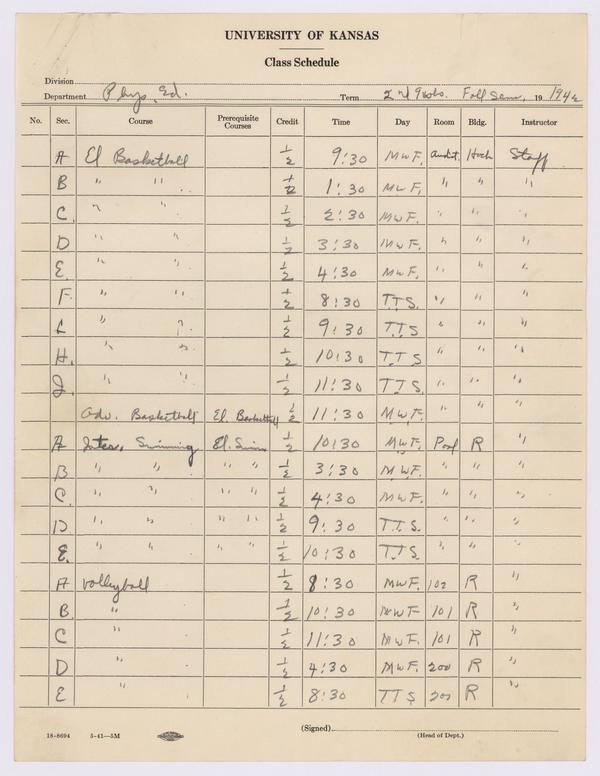 UNIVERSITY OF KANSAS
Class Schedule
Division
Department Phys. Ed. Term 2nd 9 wks. Fall Sem, 1942
No. Sec. Course Prerequisite Courses Credit Time Day Room Bldg. Instructor
A El Basketball 1/2 9:30 MWF. Audit. Hoch Staff
B " " 1/2 1:30 MWF, " " "
C. " " 1/2 2:30 MWF. " " "
D " " 1/2 3:30 MWF. " " "
E. " " 1/2 4:30 MWF. " " "
F. " " 1/2 8:30 T.T.S. " " "
" " 1/2 9:30 T.T.S " " "
H. " " 1/2 10:30 T.T.S " " "
J. " " 1/2 11:30 T.T.S. " " "
Adv. Basketball El. Basketball 1/2 11:30 M.W.F. " " "
A Inter. Swimming El. Swim 1/2 10:30 MWF. Pool R "
B " " " " 1/2 3:30 MWF. " " "
C. " " " " 1/2 4:30 MWF. " " "
D " " " " 1/2 9:30 T.T.S. " " "
E. " " " " 1/2 10:30 T.T.S. " " "
A Volleyball 1/2 8:30 MWF. 102 R "
B. " 1/2 10:30 MWF 101 R "
C " 1/2 11:30 MWF. 101 R "
D " 1/2 4:30 MWF. 200 R "
E " 1/2 8:30 TTS 200 R "
(Signed)
18-8694 5-41—5M (Head of Dept.)